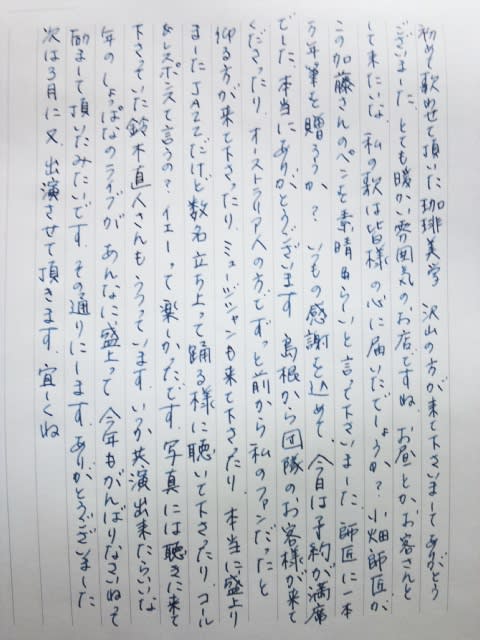 初めて歌わせて頂いた珈琲美学 沢山の方が来て下さいましてありがとう
ございました とても暖かい雰囲気のお店ですね お昼とかお客さんと
して来たいな 私の歌は皆様の心に届いたでしょうか? 小畑師匠が
この加藤さんのペンを素晴らしいと言って下さいました 師匠に一本
万年筆を贈ろうか? いつもの感謝を込めて 今日は予約が満席
でした 本当にありがとうございます 島根から団隊のお客様が来て
くださったり オーストラリア人の方でずっと前から私のファンだったと
仰る方が来て下さったり ミュージシャンも来て下さったり 本当に盛上り
ました JAZZだけど数名立ち上って踊る様に聴いて下さったり コール
&レスポンスて言うの? イェーって楽しかったです 写真には聴きに来て
下さっていた鈴木直人さんもうつっています いつか共演出来たらいいな
年のしょっぱなのライブが あんなに盛上って 今年もがんばりなさいねって
励まして頂いたみたいです その通りにします ありがとうございました
次は3月に又 出演させて頂きます 宜しくね